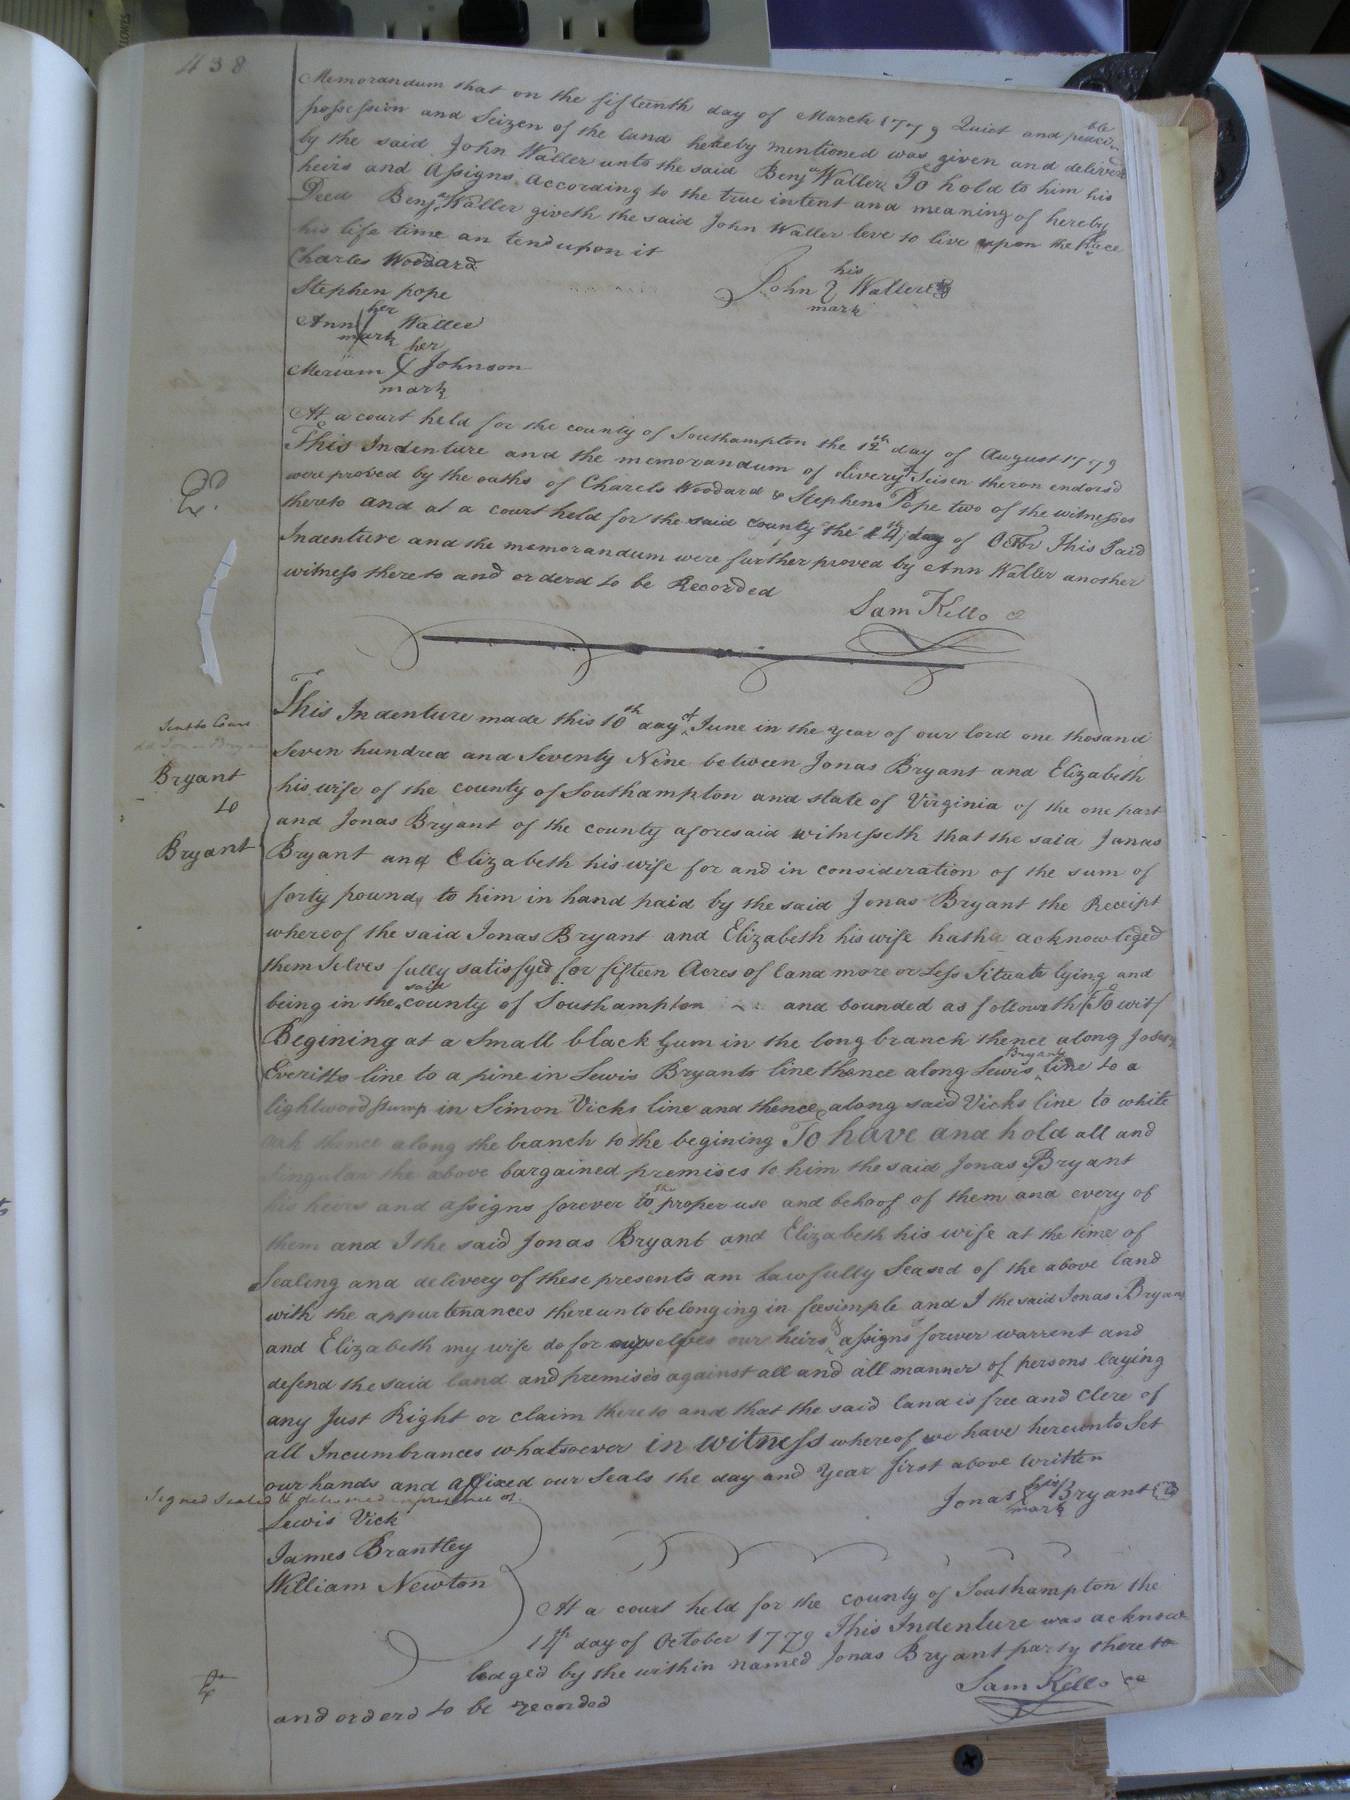 438
Memorandum that on the fifteenth day of March 1779 Quiet and peaceable
possession and Seizen of the land hereby mentioned was given and deliverd
by the said John Waller unto the said Benja Waller To hold to him his
heirs and Assigns According to the true intent and meaning of hereby
Deed Benja Waller giveth the said John Waller leve to live upon the place
his life time an tend upon it
Charles Woodard
Stephen pope
John his mark Waller
Ann her mark Waller
Meriam her mark Johnson
At a court held for the county of Southampton the 12th day of August 1779
This Indenture and the memorandum of livery & Seisen theron endorsd
were proved by the oaths of Charels Woodard & Stephen Pope two of the witnesses
thereto and at a court held for the said county the 14th day of Octbr This Said
Indenture and the memorandum were further proved by Ann Waller another
witness thereto and orderd to be Recorded
Sam Kello
Bryant
to
Bryant
This Indenture made this 10th day of June in the year of our lord one thosand
Seven hundred and Seventy Nine between Jonas Bryant and Elizabeth
his wife of the county of Southampton and state of Virginia of the one part
and Jonas Bryant of the county aforesaid witnesseth that the said Jonas
Bryant and Elizabeth his wife for and in consideration of the sum of
forty pounds to him in hand paid by the said Jonas Bryant the Receipt
whereof the said Jonas Bryant and Elizabeth his wife hath acknowliged
them Selves fully satisfyed for fifteen Acres of land more or Less Situate lying and
being in the said county of Southampton and bounded as followeth (To wit)
Begining at a Small black Gum in the long branch thence along
Everitts line to a pine in Lewis Bryants line thence along Lewis Bryants line to a
lightwood Stump in Simon Vicks line and thence along said Vicks line to white
oak thence along the branch to the begining To have and hold all and
Singular the above bargained premises to him the said Jonas Bryant
his heirs and assigns forever to the proper use and behoof of them and every of
them and I the said Jonas Bryant and Elizabeth his wife at the time of
Sealing and delivery of these presents am Lawfully Seased of the above land
with the appurtenances thereunto belonging in feesimple and I the said Jonas Bryant
and Elizabeth my wife do for ourselves our heirs & assigns forever warrent and
defend the said land and premises against all and all manner of persons laying
any Just Right or claim thereto and that the said land is free and clere of
all Incumbrances whatsoever in witness whereof we have hereunto Set
our hands and affixed our Seals the day and Year first above written
Signed Sealed & delivered in presence of
Jonas his mark Bryant
Lewis Vick
James Brantley
William Newton
At a court held for the county of Southampton the
14th day of October 1779 This Indenture was acknow
ledged by the within named Jonas Bryant party thereto
and orderd to be recorded
Sam Kello cc